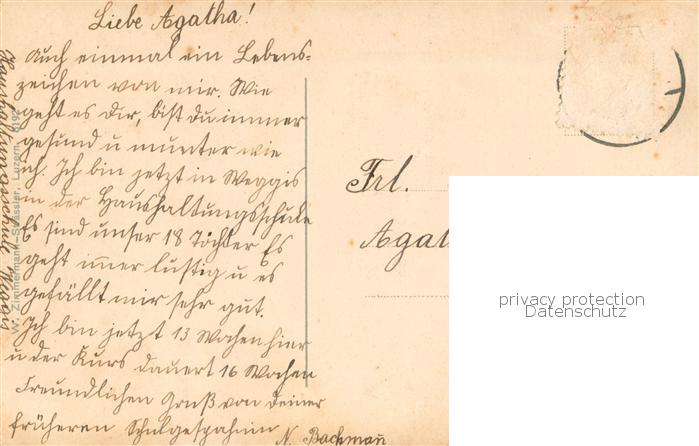 Liebe Agatha!
Auch einmal ein Lebens-
zeichen von mir. Wie
geht es Dir, bist Du immer
gesund u munter wie
ich. Ich bin jetzt in Weggis
in der Haushaltungsschule
Es sind unser 18 Töchter Es
geht immer lustig u es
gefällt mir sehr gut.
Ich bin jetzt 13 Wochen hier
u der Kurs dauert 16 Wochen
Freundlichen Gruß von deiner
früheren Schulgespahnin
N. Bachmañ
Haushaltungsschule Weggis
W. Zimmermann-Strässler, Luzern.
Frl.
Agat
privacy protection
Datenschutz